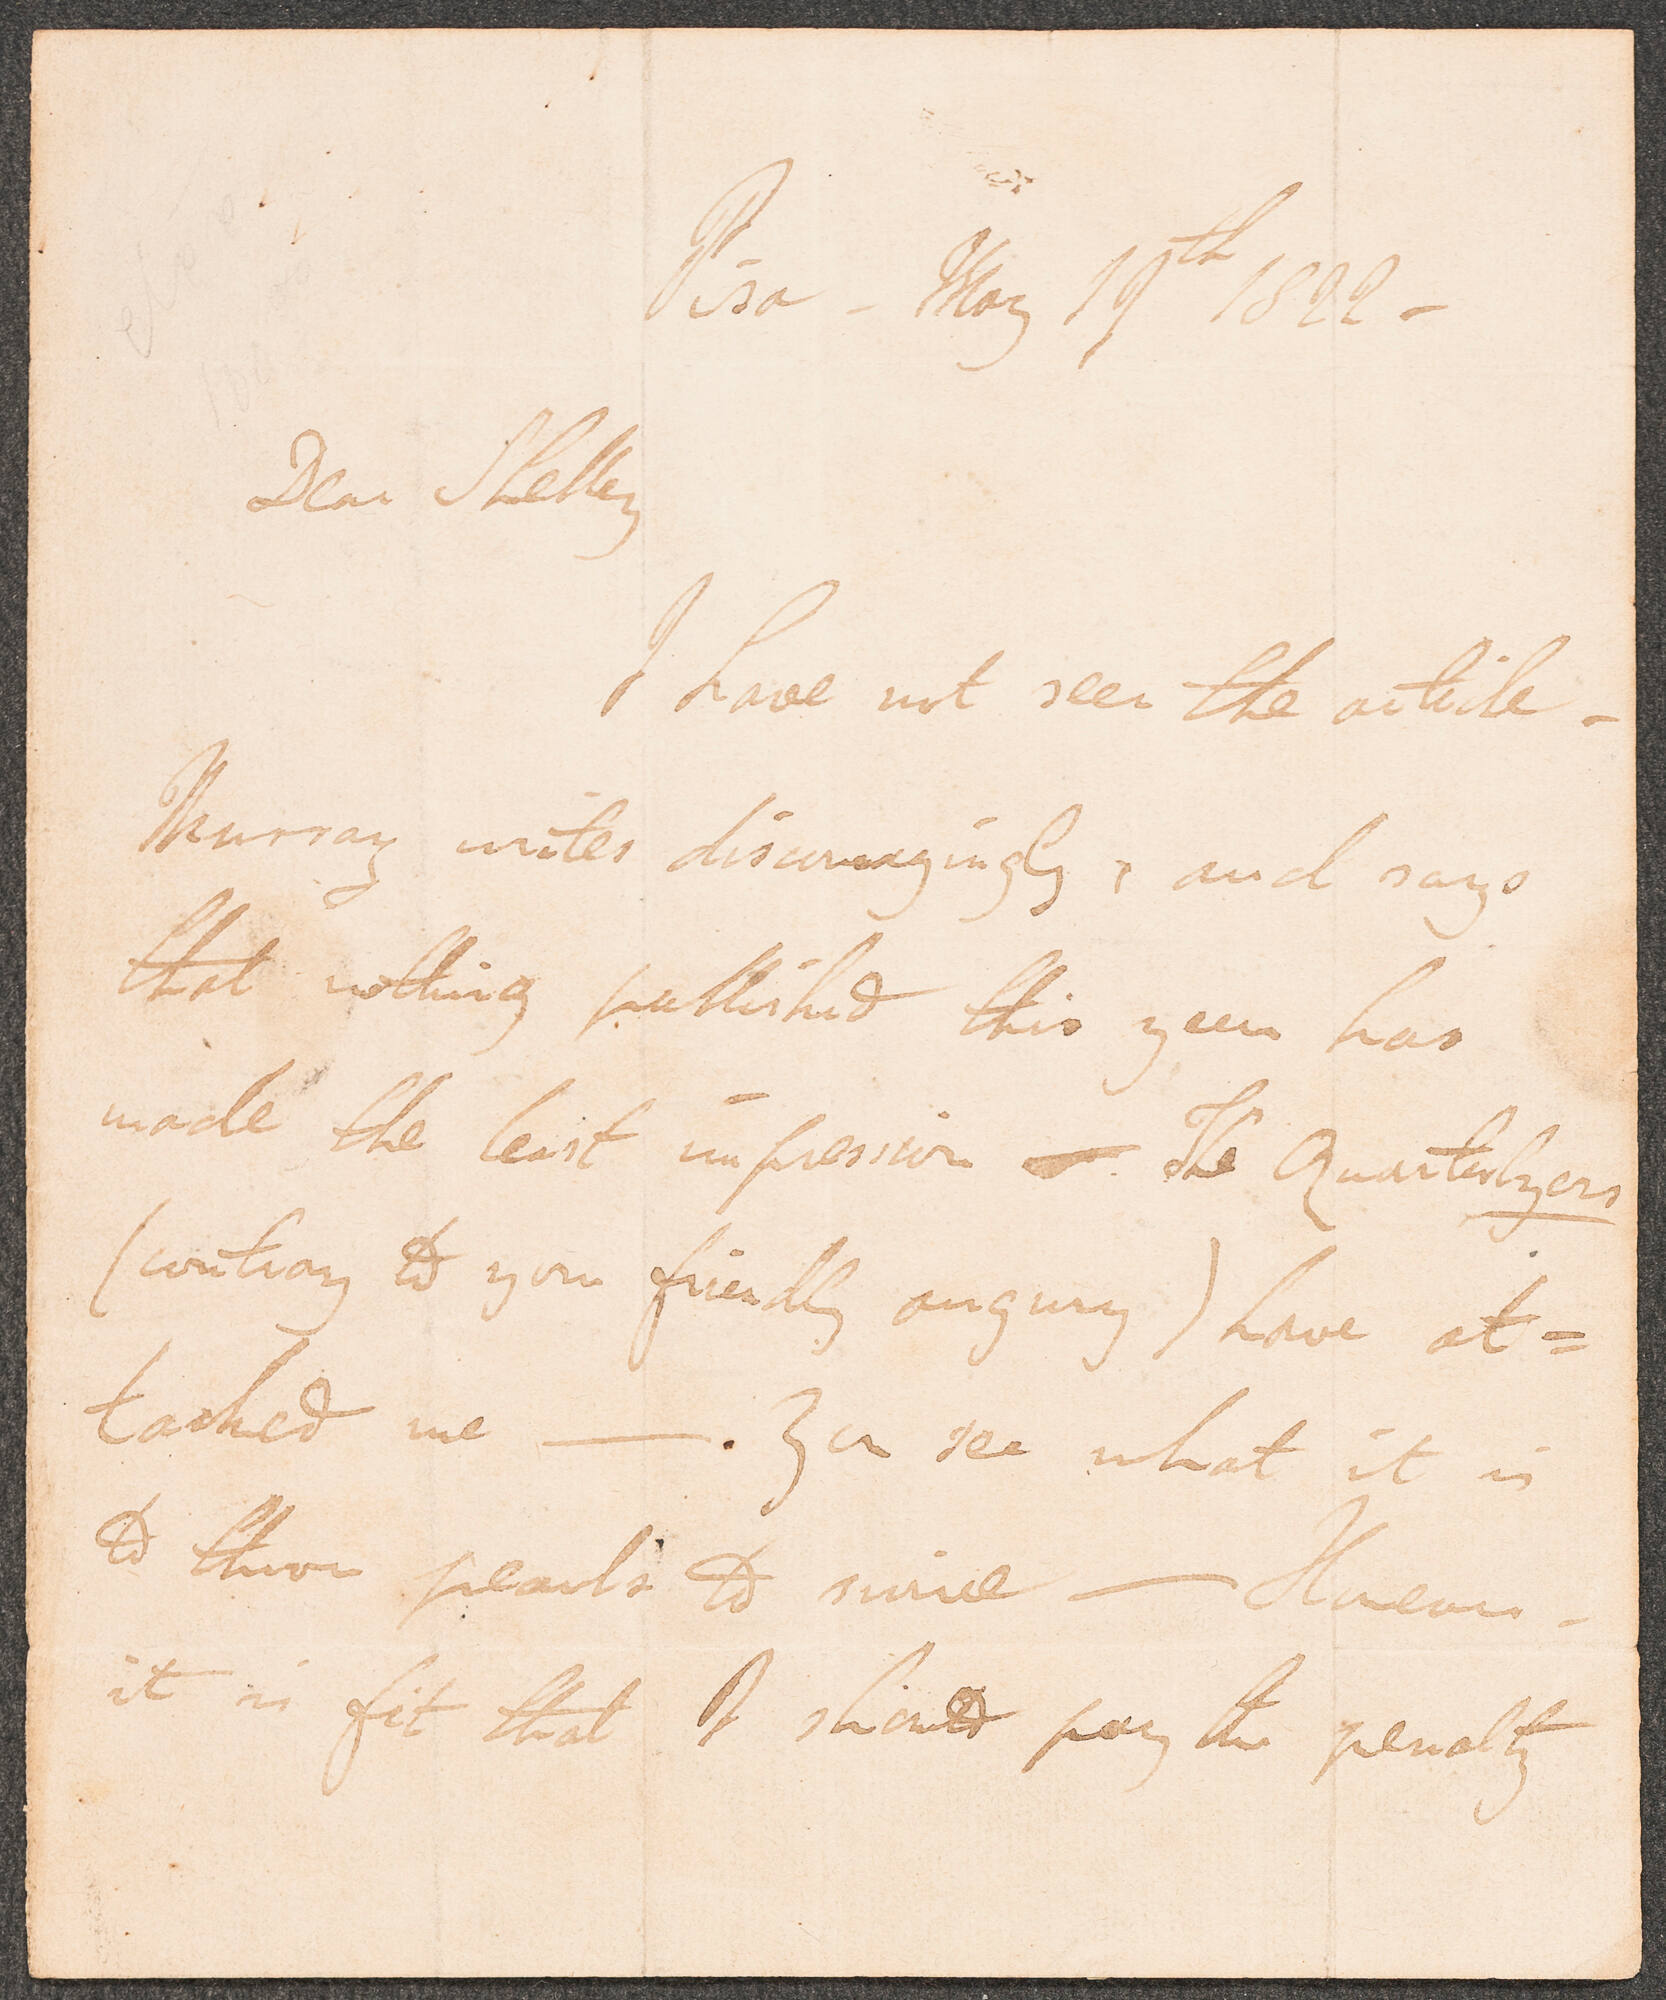 Pisa - May 19th 1822 -
Dear Shelley
I have not seen the article -
Murray writes discouragingly, and says
that nothing published this year has
made the least impression - The Quarterlyers
(contrary to your friendly augury) have at=
tacked me ——. You see what it is
to throw pearls to swine — However -
it is fit that I should pay the penalty